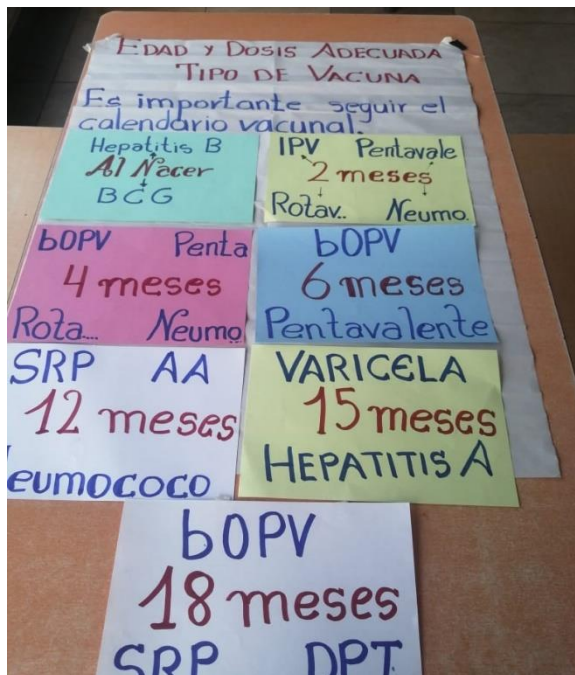 EDAD Y DOSIS ADECUADA
TIPO DE VACUNA
Es importante seguir el
calendario vacunal.
Hepatitis B
Al Nacer
BCG
IPV Pentavale
2 meses
Rotav.. Neumo.
bOPV Penta
4 meses
Rota... Neumo
bOPV
6 meses
Pentavalente
SRP AA
12 meses
eumococo
VARICELA
15 meses
HEPATITIS A
bOPV
18 meses
SRP DPT